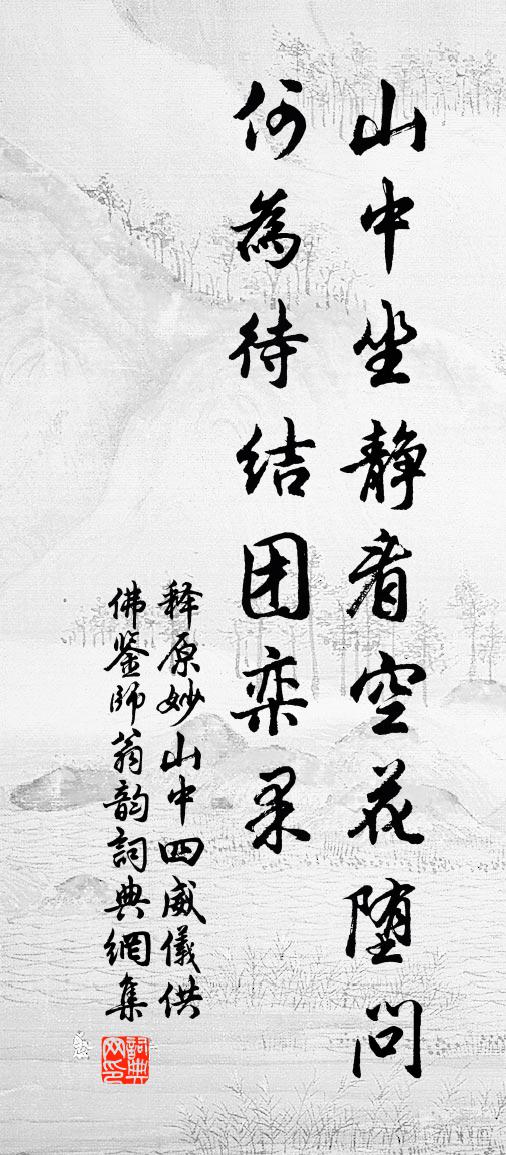 山中坐静看空花堕问
何為待结团栾果
释原妙山中四威儀供
佛鉴師翁韵詞典網集
詞典
网印